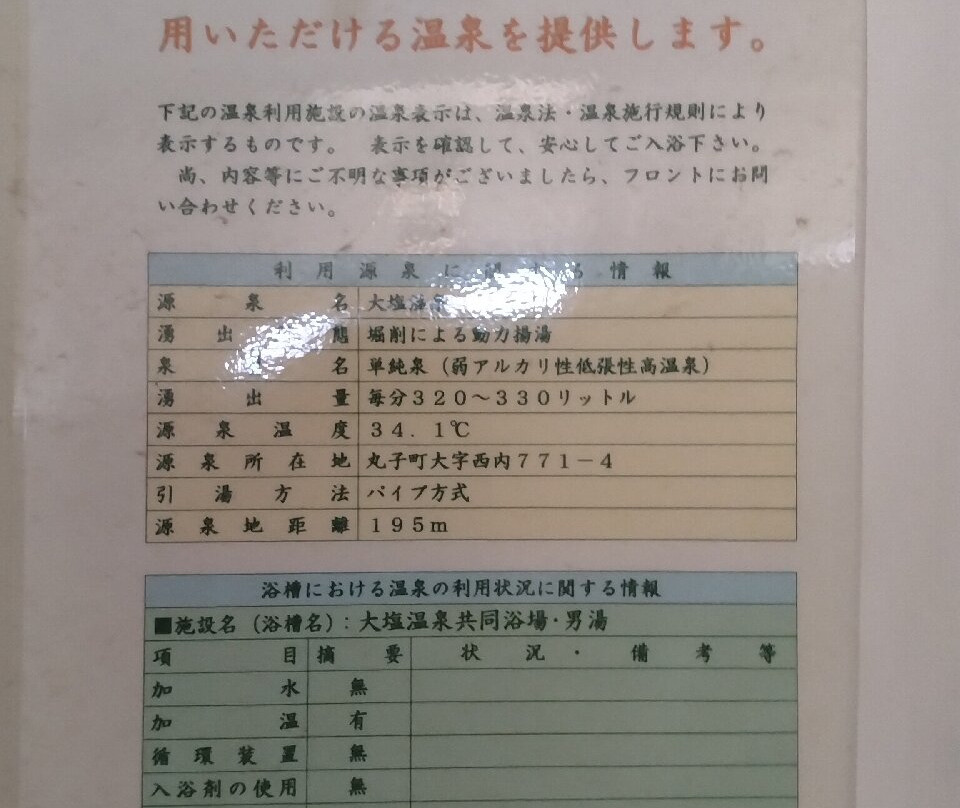 用いただける温泉を提供します。
下記の温泉利用施設の温泉表示は、温泉法・温泉施行規則により
表示するものです。　表示を確認して、安心してご入浴下さい。
尚、内容等にご不明な事項がございましたら、フロントにお問
い合わせください。
利用源泉に関する情報
源泉名 大塩温泉
湧出 態 堀削による動力揚湯
泉 名 単純泉（弱アルカリ性低張性高温泉）
湧出量 毎分３２０～３３０リットル
源泉温度 ３４．１℃
源泉所在地 丸子町大字西内７７１－４
引湯方法 パイプ方式
源泉地距離 １９５ｍ
浴槽における温泉の利用状況に関する情報
■施設名（浴槽名）：大塩温泉共同浴場・男湯
項目 摘要 状況・備考等
加水 無
加温 有
循環装置 無
入浴剤の使用 無